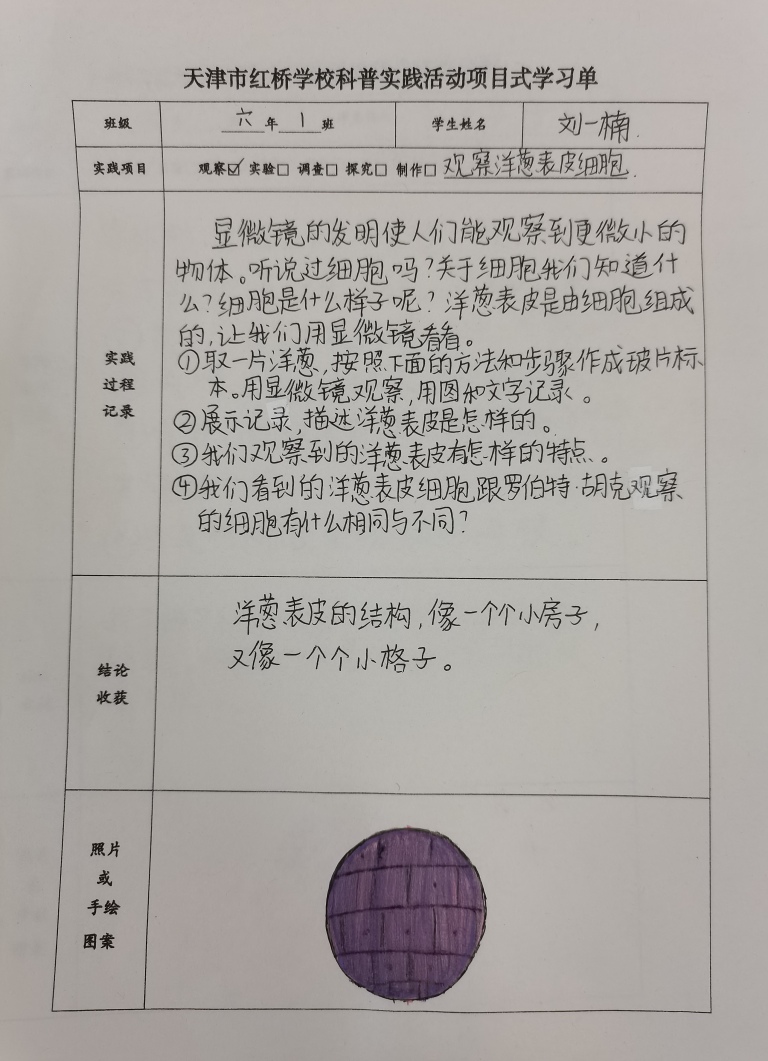 天津市红桥学校科普实践活动项目式学习单
班级 六年1班 学生姓名 刘一楠.
实践项目 观察☑ 实验□ 调查□ 探究□ 制作□ 观察洋葱表皮细胞.
实践
过程
记录
显微镜的发明使人们能观察到更微小的
物体。听说过细胞吗？关于细胞我们知道什
么？细胞是什么样子呢？洋葱表皮是由细胞组成
的,让我们用显微镜看看。
①取一片洋葱,按照下面的方法和步骤作成玻片标
本。用显微镜观察,用图和文字记录。
②展示记录,描述洋葱表皮是怎样的。
③我们观察到的洋葱表皮有怎样的特点。
④我们看到的洋葱表皮细胞跟罗伯特·胡克观察
的细胞有什么相同与不同？
结论
收获
洋葱表皮的结构,像一个个小房子,
又像一个个小格子。
照片
或
手绘
图案